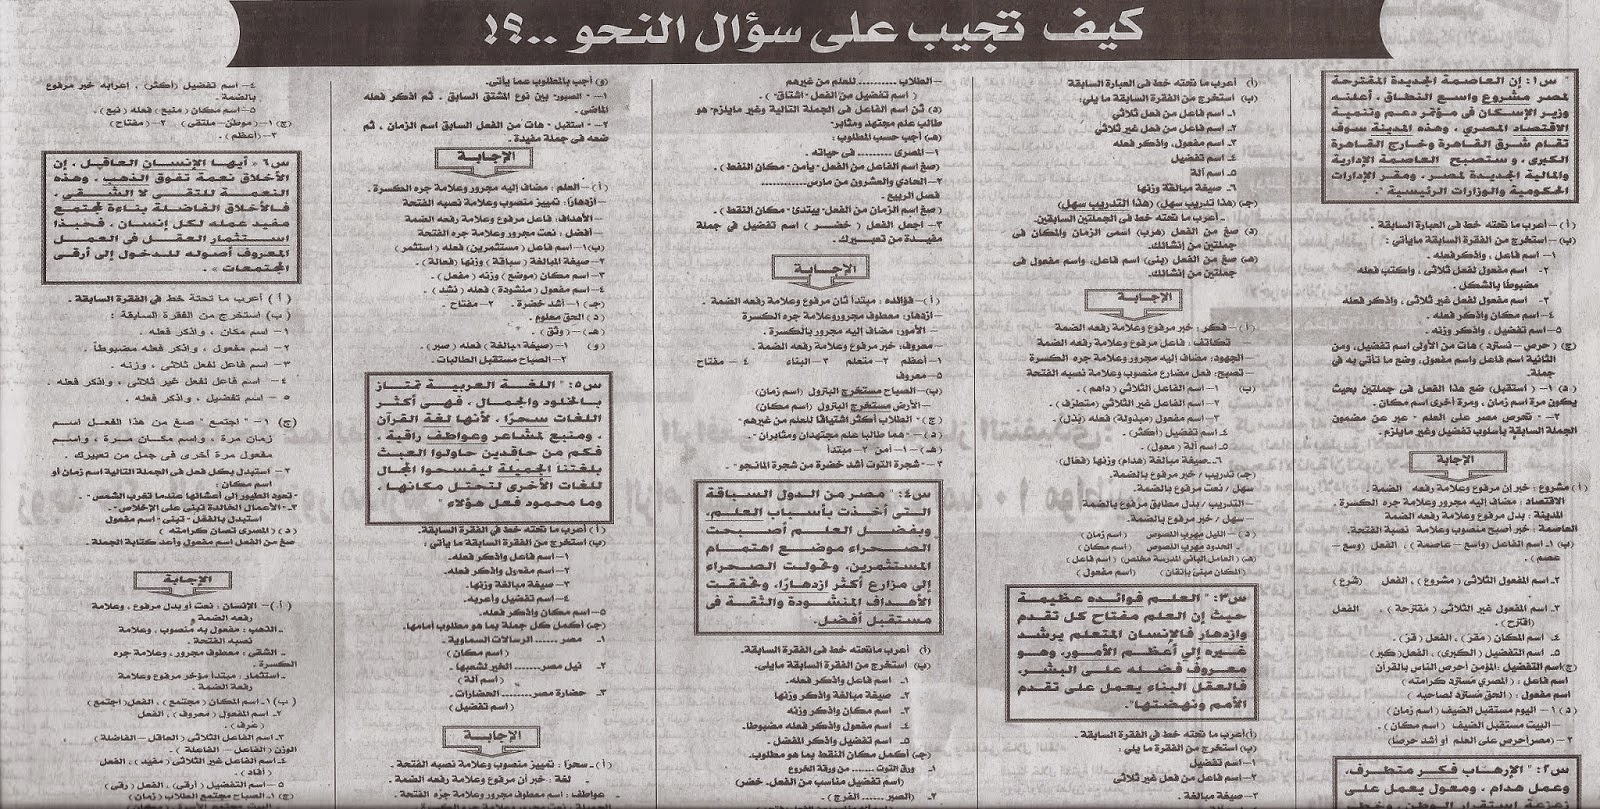 كيف تجيب على سؤال النحو ..؟!
س١: إن العاصمة الجديدة المقترحة
لمصر مشروع واسع النطاق، أعلنه
وزير الإسكان فى مؤتمر دعم وتنمية
الاقتصاد المصرى، وهذه المدينة سوف
تقام شرق القاهرة وخارج القاهرة
الكبرى، وستصبح العاصمة الإدارية
والمالية الجديدة لمصر، ومقر الإدارات
الحكومية والوزارات الرئيسية".
(أ)- أعرب ما تحته خط فى العبارة السابقة
(ب)- استخرج من الفقرة السابقة مايأتى:
١- اسم فاعل، واذكرفعله.
٢- اسم مفعول لفعل ثلاثى، واكتب فعله
مضبوطا بالشكل.
٣- اسم مفعول لفعل غير ثلاثى، واذكر فعله
٤- اسم مكان واذكر فعله.
٥- اسم تفضيل، واذكر وزنه.
(ج) (حرص- نسترد) هات من الأولى اسم تفضيل، ومن
الثانية اسم فاعل واسم مفعول، وضع ما تأتى به فى
جملة.
(د) ١- (استقبل) ضع هذا الفعل فى جملتين بحيث
يكون مرة اسم زمان، ومرة أخرى اسم مكان.
٢- "تحرص مصر على العلم" عبر عن مضمون
الجملة السابقة بأسلوب تفضيل وغير مايلزم.
الإجابة
(أ) مشروع: خبر إن مرفوع وعلامة رفعه الضمة.
الاقتصاد: مضاف إليه مجرور وعلامة جره الكسرة.
المدينة: بدل مرفوع وعلامة رفعه الضمة
العاصمة: خبر أصبح منصوب وعلامة نصبه الفتحة.
(ب) ١ـ اسم الفاعل (واسع- عاصمة)، الفعل (وسع-
عصم).
٢ـ اسم المفعول الثلاثى (مشروع)، الفعل (شرع)
٣ـ اسم المفعول غير الثلاثى (مقترحة)، الفعل
(اقترح).
٤ـ اسم المكان (مقر)، الفعل (قر).
٥ـ اسم التفضيل (الكبرى)، الفعل(كبر)
(ج)اسم التفضيل: المؤمن أحرص الناس بالقرآن
اسم فاعل: (المصرى مسترد كرامته)
اسم مفعول: (الحق مسترد لصاحبه)
(د) ١- اليوم مستقبل الضيف (اسم زمان)
- البيت مستقبل الضيف (اسم مكان).
٢- (مصرأحرص على العلم أو أشد حرصا)
س٢: "الإرهاب فكر متطرف،
وعمل هدام، ومعول يعمل على
(أ) أعرب ما تحته خط فى العبارة السابقة
(ب) استخرج من الفقرة السابقة ما يلى:
١ـ اسم فاعل من فعل ثلاثى
٢ـ اسم فاعل من فعل غير ثلاثى
٣ـ اسم مفعول، واذكر فعله
٤ـ اسم تفضيل
٥ـ اسم آلة
٦ـ صيغة مبالغة وزنها
(جـ) (هذا تدريب سهل) (هذا التدريب سهل)
ـ أعرب ما تحته خط فى الجملتين السابقتين.
(د) صغ من الفعل (هرب) اسمى الزمان والمكان فى
جملتين من إنشائك.
(هـ) صغ من الفعل (بنى) اسم فاعل، واسم مفعول فى
جملتين من إنشائك.
الإجابة
(أ)- فكر: خبر مرفوع وعلامة رفعه الضمة
تكاتف: فاعل مرفوع وعلامة رفعه الضمة
الجهود: مضاف إليه مجرور وعلامة جره الكسرة
تصبح: فعل مضارع منصوب وعلامة نصبه الفتحة
(ب) ١- اسم الفاعل الثلاثى (داهم).
٢- اسم الفاعل غير الثلاثى (متطرف).
٣- اسم مفعول (مبذولة) فعله (بذل).
٤ـ اسم تفضيل (أكثر).
٥ـ اسم آلة (معول).
٦ـ صيغة مبالغة (هدام) وزنها (فعال)
(جـ)ـ تدريب/ خبر مرفوع بالضمة.
سهل/ نعت مرفوع بالضمة.
ـ التدريب/ بدل مطابق مرفوع بالضمة
ـ سهل/ خبر مرفوع بالضمة.
(د)- الليل مهرب اللصوص (اسم زمان)
ـ الحدود مهرب اللصوص (اسم مكان)
(هـ) (العامل البانى المدرسة مخلص) (اسم فاعل)
(المكان مبنى بإتقان) (اسم مفعول)
س٣: "العلم فوائده عظيمة
حيث إن العلم مفتاح كل تقدم
وازدهار فالإنسان المتعلم يرشد
غيره إلى أعظم الأمور، وهو
معروف فضله على البشر،
فالعقل البناء يعمل على تقدم
الأمم ونهضتها".
(أ) أعرب ما تحته خط فى الفقرة السابقة:
(ب) استخرج من الفقرة ما يلى:
١- اسم تفضيل
٢- اسم فاعل من فعل غير ثلاثى
٣- صيغة مبالغة.
- الطلاب .......... للعلم من غيرهم
(اسم تفضيل من الفعل- اشتاق").
(د) ثن اسم الفاعل فى الجملة التالية وغير مايلزم" هو
طالب علم مجتهد ومثابر.
(هـ) أجب حسب المطلوب
١- المصرى .......... فى حياته.
(صغ اسم الفاعل من الفعل- يأمن- "مكان النقط).
٢- الحادى والعشرون من مارس...........
فصل الربيع.
(صغ اسم الزمان من الفعل- يبتدئ- "مكان النقط).
٣- اجعل الفعل (خضر) اسم تفضيل فى جملة
مفيدة من تعبيرك.
الإجابة
(أ)- فوائده: مبتدأ ثان مرفوع وعلامة رفعه الضمة.
- ازدهار: معطوف مجروروعلامة جره الكسرة
-الأمور: مضاف إليه مجرور بالكسرة.
- معروف: خبر مرفوع وعلامة رفعه الضمة.
١- أعظم ٢- متعلم ٣- البناء ٤- مفتاح
٥- معروف
(ب)- الصباح مستخرج البترول (اسم زمان)
- الأرض مستخرج البترول (اسم مكان)
(ج)" الطلاب أكثر اشتياقا للعلم من غيرهم
(د)- "هما طالبا علم مجتهدان ومثابران".
(هـ)- ١- آمن ٢- مبتدأ
٣- شجرة التوت أشد خضرة من شجرة المانجو".
س٤: "مصر من الدول السباقة
التى أخذت بأسباب العلم،
وبفضل العلم أصبحت
الصحراء موضع اهتمام
المستثمرين، وتحولت الصحراء
إلى مزارع أكثر ازدهارا، وتحققت
الأهداف المنشودة والثقة فى
مستقبل أفضل.
(أ) أعرب ماتحته خط فى الفقرة السابقة.
(ب) استخرج من الفقرة السابقة مايلى.
١ـ اسم فاعل واذكر فعله.
٢ـ صيغة مبالغة واذكر وزنها
٣ـ اسم مكان واذكر وزنه
٤ـ اسم مفعول واذكر فعله مضبوطا.
٥ـ اسم تفضيل واذكر المفضل.
(جـ) أكمل مكان النقط بما هو مطلوب.
١ـ ورق التوت ........ من ورقة الخروع
(اسم تفضيل مناسب من الفعل، خضر)
٢ـ (الصبر ...... الفرج).
(و) أجب بالمطلوب عما يأتى.
١- "الصبور" بين نوع المشتق السابق، ثم اذكر فعله
الماضى.
٢- "استقبل" هات من الفعل السابق اسم الزمان، ثم
ضعه فى جملة مفيدة.
الإجابة
(أ)- العلم: مضاف إليه مجرور وعلامة جره الكسرة.
- ازدهارا: تمييز منصوب وعلامة نصبه الفتحة
- الأهداف: فاعل مرفوع وعلامة رفعه الضمة
- أفضل: نعت مجرور وعلامة جره الفتحة
(ب) ١- اسم فاعل (مستثمرين) فعله (استثمر)
٢- صيغة المبالغة (سباقة) وزنها (فعالة).
٣- اسم مكان (موضع) وزنه (مفعل).
٤- اسم مفعول (منشودة) فعله (نشد)
(جـ) ١- أشد خضرة. ٢- مفتاح.
(د) الحق معلوم.
(هـ)- (وثق).
(و) ١- (صيغة- مبالغة) فعله (صبر).
٢- الصباح مستقبل الطالبات.
س٥: "اللغة العربية تمتاز
بالخلود والجمال، فهى أكثر
اللغات سحرا، لأنها لغة القرآن
، ومنبع لمشاعر وعواطف راقية،
فكم من حاقدين حاولوا العبث
بلغتنا الجميلة ليفسحوا المجال
للغات الأخرى لتحتل مكانها،
وما محمود فعل هؤلاء"
(أ) أعرب ما تحته خط فى الفقرة السابقة.
(ب) استخرج من الفقرة السابقة ما يأتى:
١- اسم فاعل واذكر فعله.
٢- اسم مفعول واذكر فعله.
٣- صيغة مبالغة وزنها.
٤- اسم تفضيل وأعربه.
٥- اسم مكان واذكر فعله.
(جـ) أكمل كل جملة بما هو مطلوب أمامها.
١ـ مصر ....... الرسالات السماوية.
(اسم مكان)
٢ـ نيل مصر....... الخير لشعبها.
(اسم آلة)
٣ـ حضارة مصر........ الحضارات.
(اسم تفضيل)
الإجابة
(أ)ـ سحرا: تمييز منصوب وعلامة نصبه الفتحة.
ـ لغة: خبر أن مرفوع وعلامة رفعه الضمة.
ـ عواطف: اسم معطوف مجرور وعلامة جره الفتحة.
٤- اسم تفضيل (أكثر)، إعرابه خبر مرفوع
بالضمة.
٥- اسم مكان (منبع) فعله (نبع)
(ج) ١- (موطن- ملتقى) ٢- (مفتاح)
٣- (أعظم).
س٦ "أيها الإنسان العاقل، إن
الأخلاق نعمة تفوق الذهب، وهذه
النعمة للتقى لا الشقى،
فالأخلاق الفاضلة بناءة لمجتمع
مفيد عمله لكل إنسان، فحبذا
استثمار العقل فى العمل
المعروف أصوله للدخول إلى أرقى
المجتمعات".
(أ) أعرب ما تحتة خط فى الفقرة السابقة.
(ب) استخرج من الفقرة السابقة:
١- اسم مكان، واذكر فعله.
٢- اسم مفعول، واذكر فعله مضبوطاً.
٣- اسم فاعل لفعل ثلاثى، وزنه.
٤- اسم فاعل لفعل غير ثلاثى، واذكر فعله.
٥- اسم تفضيل، واذكر فعله.
(ج) ١- "اجتمع" صغ من هذا الفعل اسم
زمان مرة، واسم مكان مرة، واسم
مفعول مرة أخرى فى جمل من تعبيرك.
٢- استبدل بكل فعل فى الجملة التالية اسم زمان أو
اسم مكان:
"تعود الطيور إلى أعشائها عندما تغرب الشمس".
٣- "الأعمال الخالدة تبنى على الإخلاص".
استبدل بالفعل "تبنى" اسم مفعول
(د) (المصرى تصان كرامته)
صغ من الفعل اسم مفعول وأعد كتابة الجملة.
الإجابة
(أ.)- الإنسان: نعت أو بدل مرفوع، وعلامة
رفعه الضمة
ـ الذهب: مفعول به منصوب، وعلامة
نصبه الفتحة.
ـ الشقى: معطوف مجرور، وعلامة جره
الكسرة.
ـ استثمار: مبتدأ مؤخر مرفوع وعلامة
رفعة الضمة.
(ب) ١ـ اسم المكان (مجتمع)، الفعل(اجتمع)
٢ـ اسم المفعول (معروف)، الفعل
(عرف).
٣ـ اسم الفاعل الثلاثى (العاقل- الفاضلة)
الوزن (الفاعل- الفاعلة).
٤ـ اسم الفاعل غير الثلاثى (مفيد)، الفعل
(أفاد)
٥ـ اسم التفضيل (أرقى)، الفعل (رقى)
(ج) ١ـ الصباح مجتمع الطلاب (زمان)